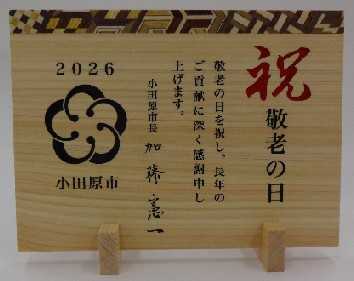 祝
敬老の日
敬老の日を祝し、長年の
ご貢献に深く感謝申し
上げます。
小田原市長 加藤憲一
2026
小田原市